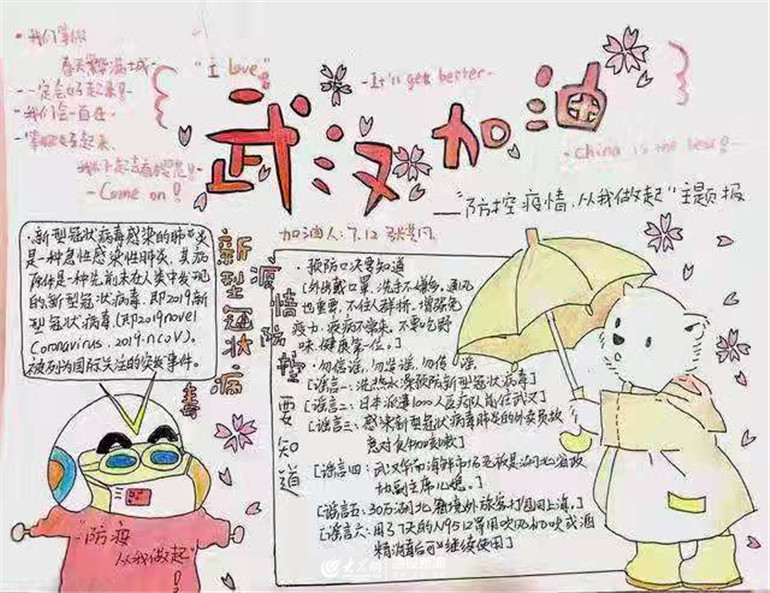 ·我们等你
"I love"
春天繁花满城-
-一定会好起来!-
·我们会一直在
-等你好起来,
-Come on!
-It'll get better-
武汉加油
-China is the best!-
—"防控疫情,从我做起"主题报
加油人:7.12
·新型冠状病毒感染的肺炎
是一种急性感染性肺炎,其病
原体是一种先前未在人类中发现
的新型冠状病毒,即2019新
型冠状病毒,(即2019novel
Coronavirus,2019-nCoV).
被列为国际关注的突发事件。
新型冠状病毒
疫情防控要知道
·预防口决要知道
[外出戴口罩,洗手不嫌多。通风
也重要,不住人群挤,增强免
疫力,疾病不零来,不要吃野
味,健康第一位。]
·勿信谣,勿造谣,勿传谣,
[谣言一:洗热水澡预防新型冠状病毒]
[谣言二:日本派遣1000人医疗队前往武汉]
[谣言三:感染新型冠状病毒肺炎的外卖员故
意对食物咳嗽]
[谣言四:武汉华南海鲜市场老板是湖北省政
协副主席儿媳。]
[谣言五:30万湖北籍境外旅客打包回上海。]
[谣言六:用了7天的N95口罩用吹风机吹或酒
精消毒后可继续使用]
"防疫
从我做起"!